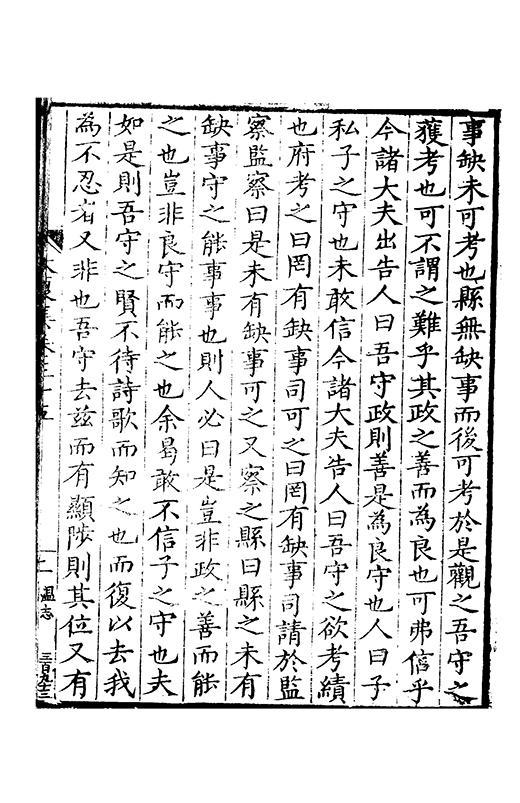 事缺未可考也縣無缺事而後可考於是觀之吾守之
獲考也可不謂之難乎其政之善而為良也可弗信乎
今諸大夫出告人曰吾守政則善是為良守也人曰子
私子之守也未敢信今諸大夫告人曰吾守之欲考績
也府考之曰罔有缺事司可之曰罔有缺事司請於監
察監察曰是未有缺事可之又察之縣曰縣之未有
缺事守之能事事也則人必曰是豈非政之善而能
之也豈非良守而能之也余曷敢不信子之守也夫
如是則吾守之賢不待詩歌而知之也而復以去我
為不忍者又非也吾守去兹而有顯陟則其位又有
二 温志 三百九十三